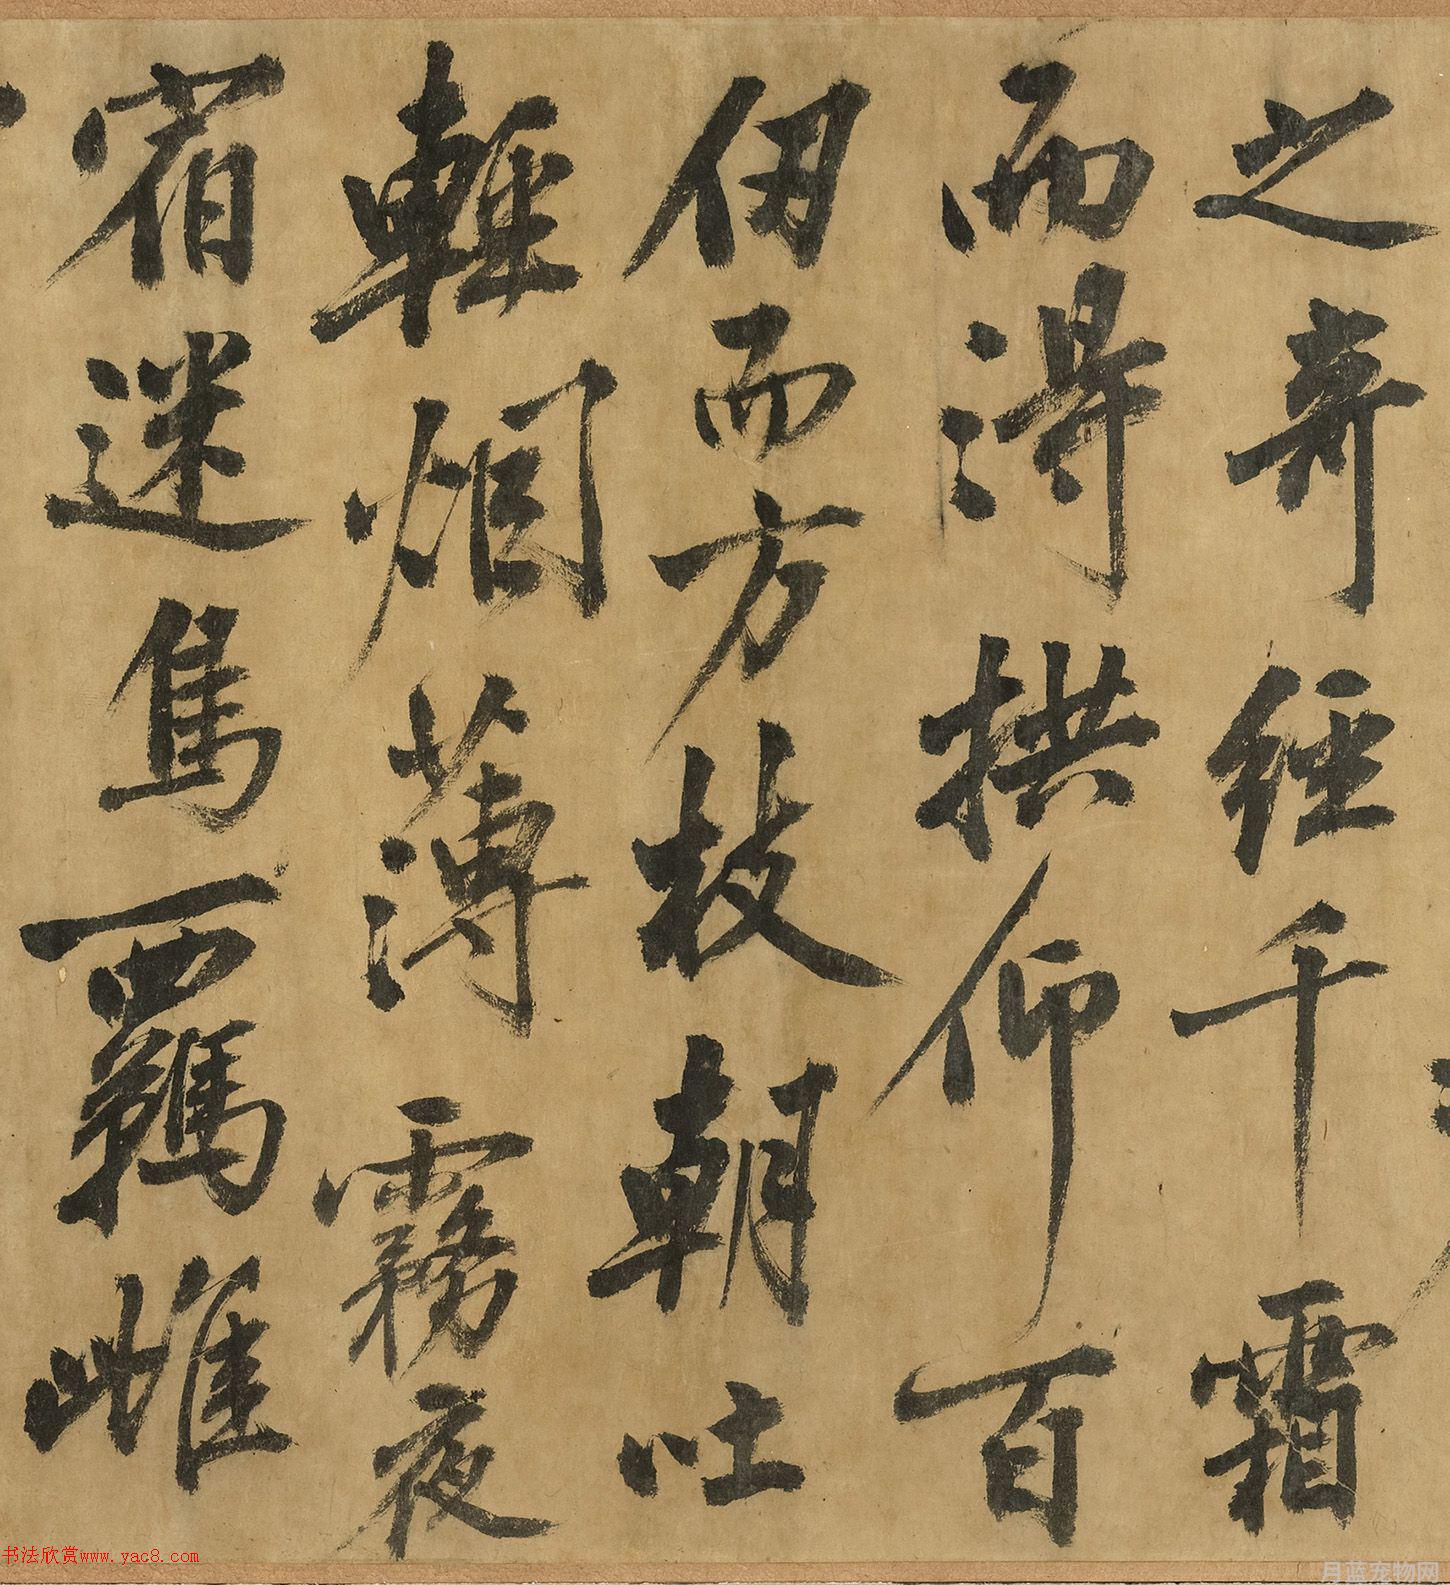 之奇經千霜
而得拱仰百
仞而方枝朝吐
輕烟薄霧夜
宿迷鳥羈雌
书法欣赏www.yac8.com
月蓝宠物网